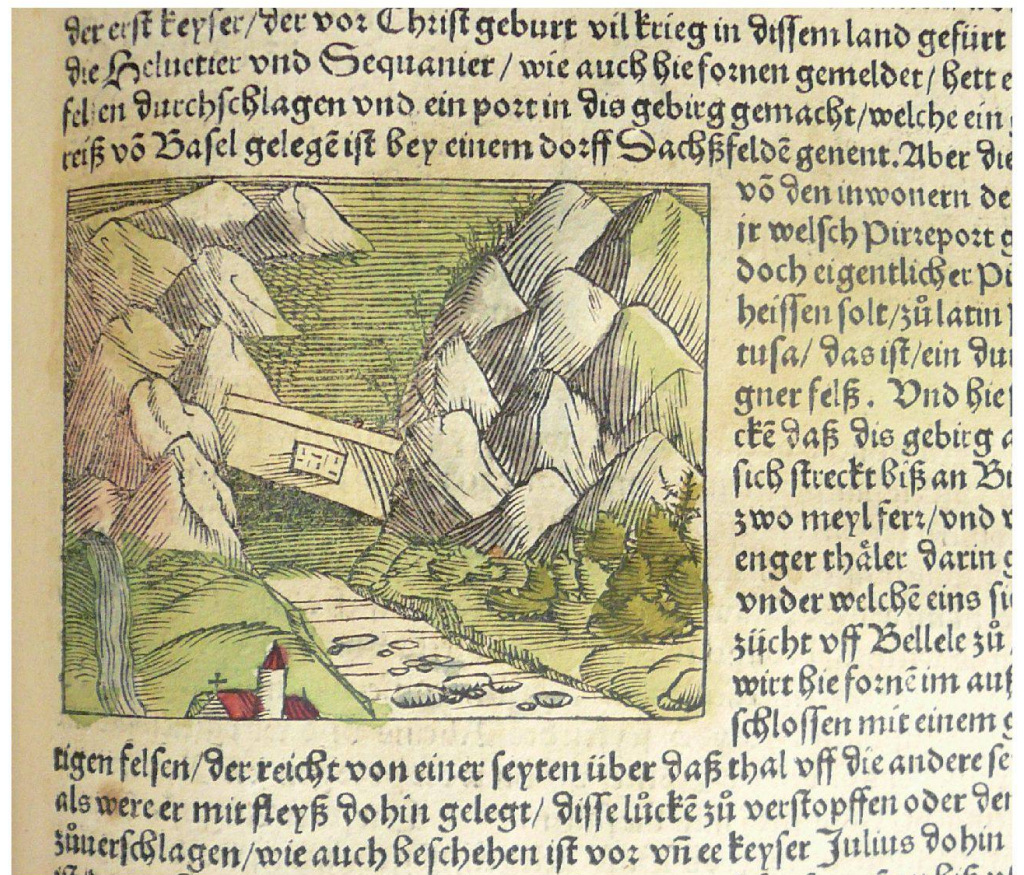 der erst keyser/der vor Christ geburt vil krieg in dissem land gefürt
die Heluetier vnd Sequanier / wie auch hie fornen gemeldet/ hett
felsen durchschlagen vnd ein port in dis gebirg gemacht/welche ein
reiß võ Basel gelegẽ ist bey einem dorff Sachßfeldẽ genent. Aber die
võ den inwonern
jr welsch Pirreport
doch eigentlicher
heissen solt/zů latin
tusa/ das ist/ein
gner felß. Vnd
ckẽ daß dis gebirg
sich streckt biß an
zwo meyl ferr/vnd
enger thåler darin
vnder welchẽ eins
zücht vff Bellele zů
wirt hie fornẽ im
schlossen mit einem
tigen felsen/der reicht von einer seyten über daß thal vff die andere
als were er mit fleyß dohin gelegt/ disse lůckẽ zů verstopffen oder
zůuerschlagen/wie auch beschehen ist vor vñ ee keyser Julius dohin